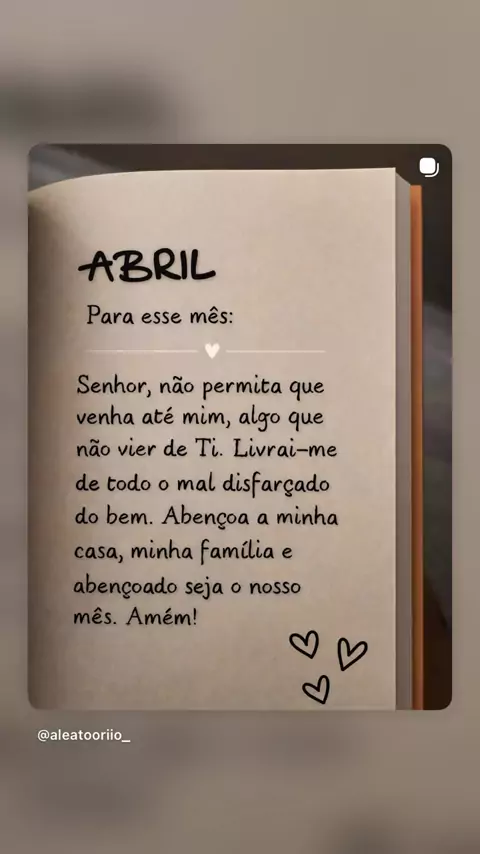 ABRIL
Para esse mês:
Senhor, não permita que
venha até mim, algo que
não vier de Ti. Livrai-me
de todo o mal disfarçado
do bem. Abençoa a minha
casa, minha família e
abençoado seja o nosso
mês. Amém!
@aleatooriio_